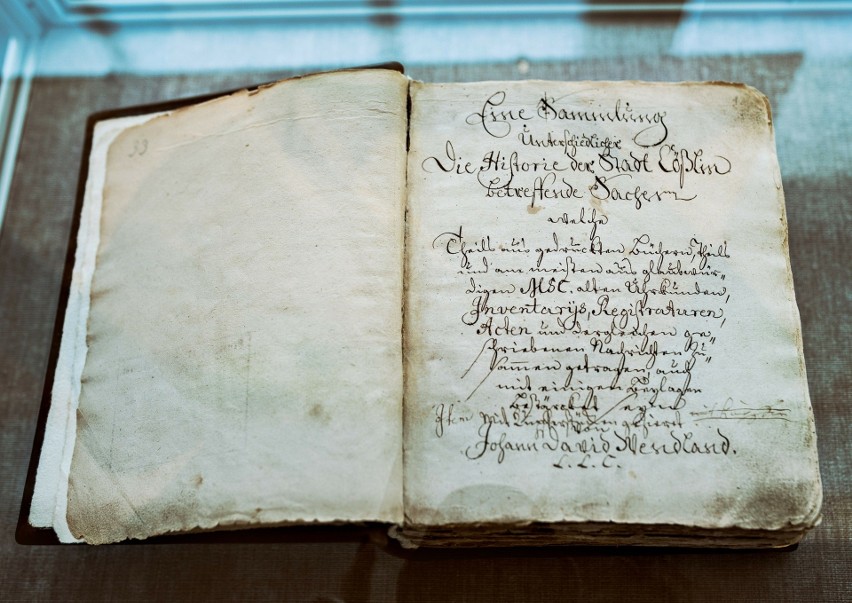 33
Eine Sammlung
Unterschiedlicher
Die Historie der Stadt Cößlin
betreffende Sachen
welche
Theils aus gedruckten Büchern, theils
und am meisten aus glaubwür-
digen MSC. alten Uhrkunden,
Inventariis, Registraturen,
Acten und dergleichen ge-
schriebenen Nachrichten zu-
sammen getragen, auch
mit einigen Beylagen
bestärcket
Item mit
von
Johann David Wendland.
L. L. C.